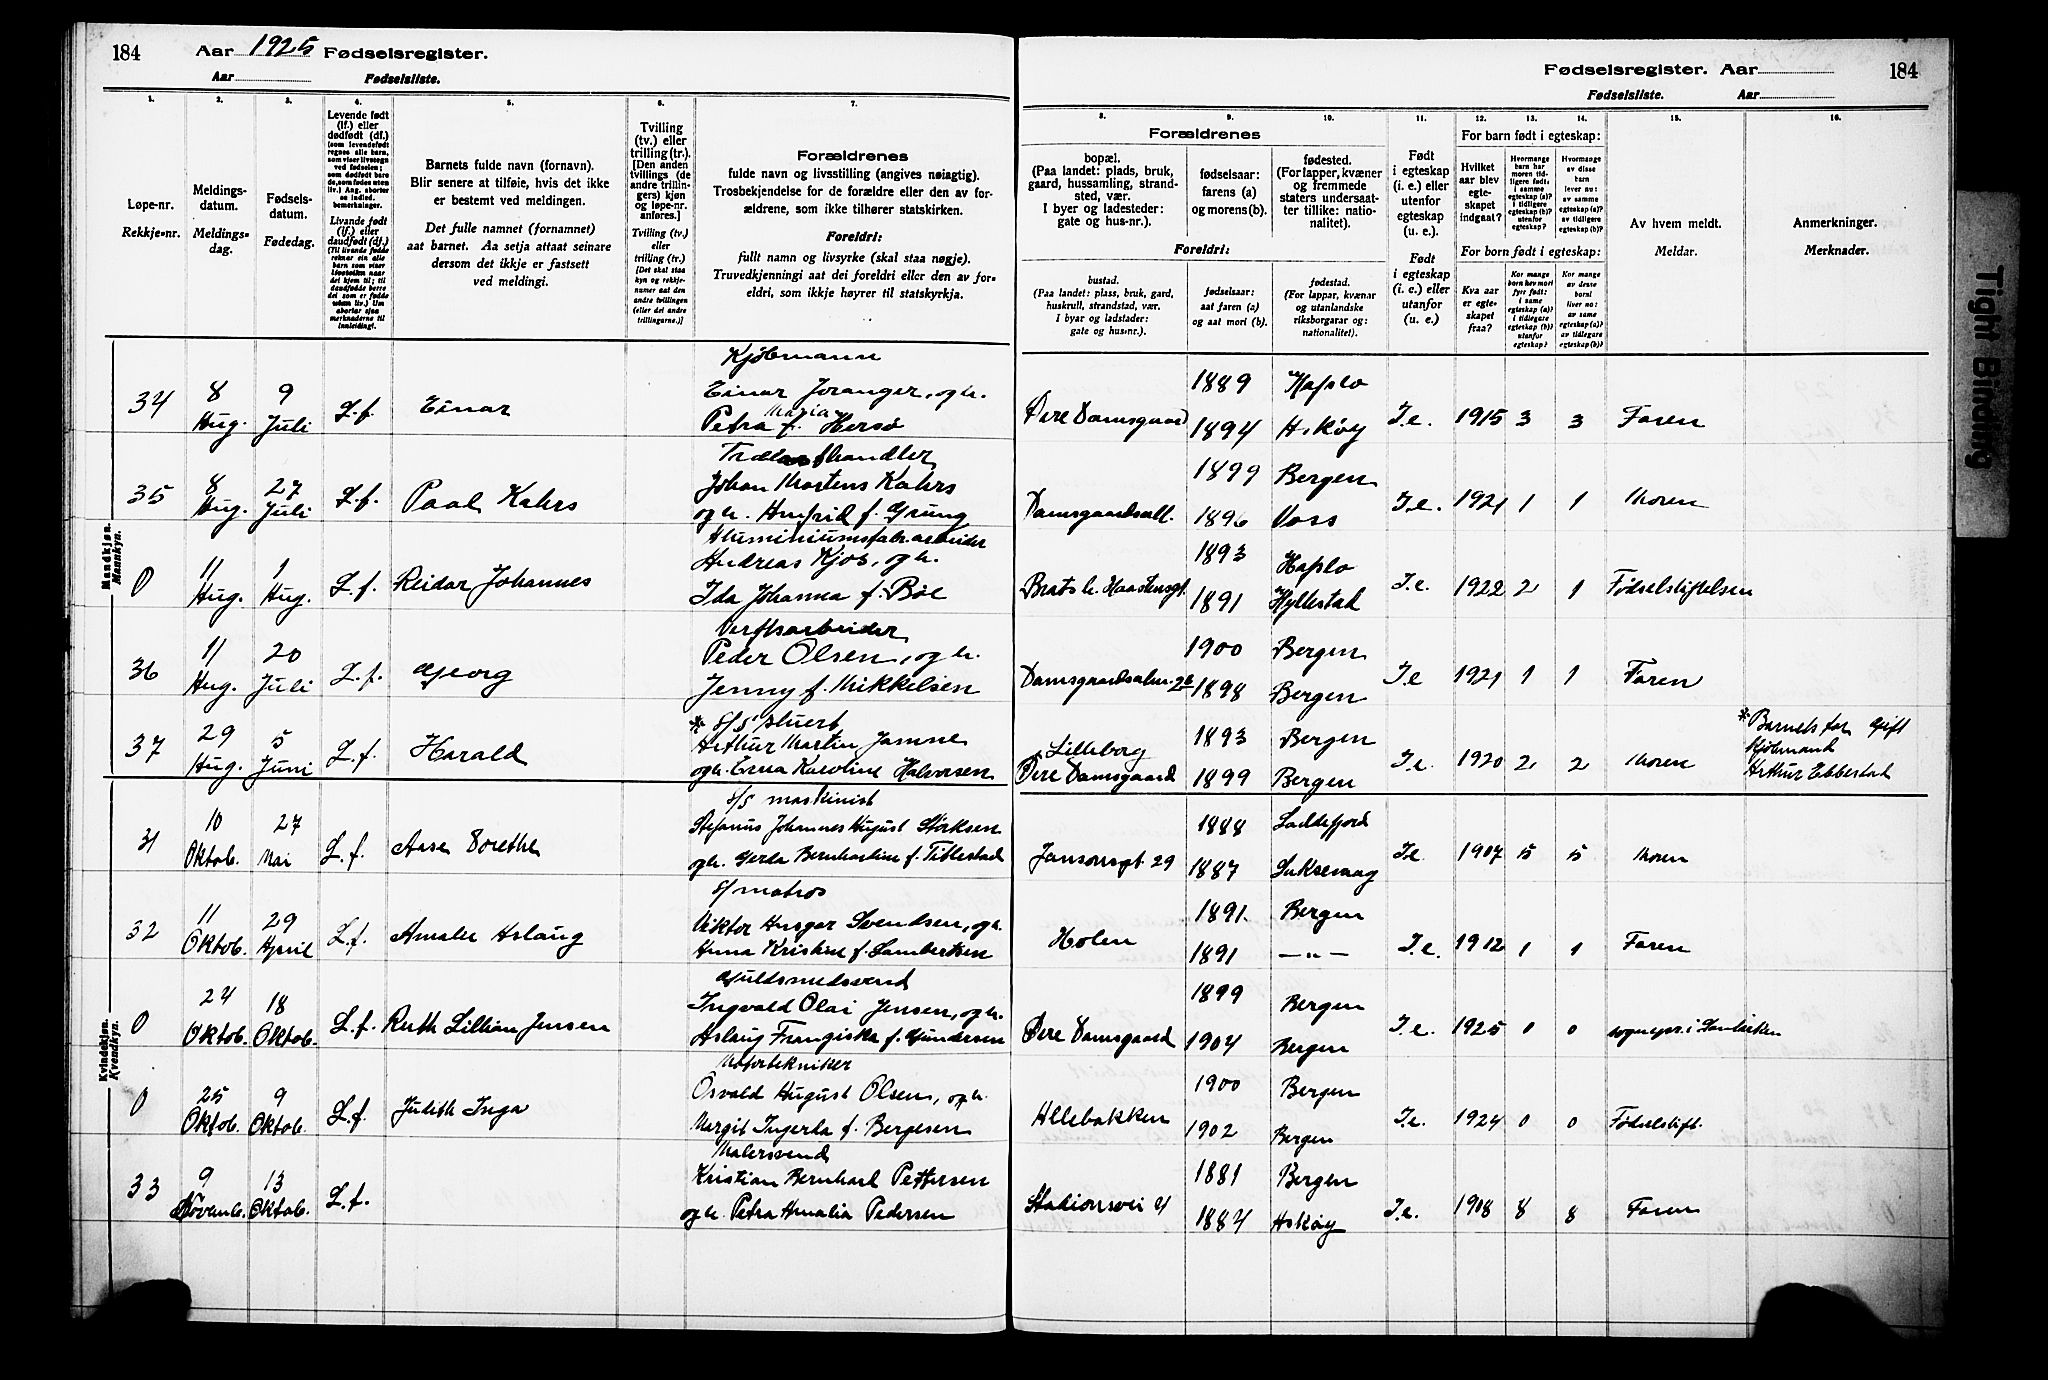 184 Aar 1925 Fødselsregister.
Aar Fødselsliste.
Fødselsregister. Aar 184
Fødselsliste. Aar
1. 2. 3. 4. 5. 6. 7.
8. 9. 10. 11. 12. 13. 14. 15. 16.
Løpe-nr.
Rekkje-nr.
Meldings-
datum.
Meldings-
dag.
Fødsels-
datum.
Fødedag.
Levende født
(lf.) eller
dødfødt (df.)
Livande født
(lf.) eller
daudfødt (df.)
Barnets fulde navn (fornavn).
Blir senere at tilføie, hvis det ikke
er bestemt ved meldingen.
Det fulle namnet (fornamnet)
aat barnet. Aa setja attaat seinare
dersom det ikkje er fastsett
ved meldingi.
Tvilling
(tv.) eller
trilling (tr.).
[Den anden
tvillings (de
andre trillin-
gers) kjøn
og løpe-nr.
anføres.]
Tvilling (tv.)
eller
trilling (tr.)
Forældrenes
fulde navn og livsstilling (angives nøiagtig).
Trosbekjendelse for de forældre eller den av for-
ældrene, som ikke tilhører statskirken.
Foreldri:
fullt namn og livsyrke (skal staa nøgje).
Truvedkjenningi aat dei foreldri eller den av for-
eldri, som ikkje høyrer til statskyrkja.
Forældrenes
bopæl.
(Paa landet: plads, bruk,
gaard, hussamling, strand-
sted, vær.
I byer og ladesteder:
gate og hus-nr.).
fødselsaar:
farens (a)
og morens (b).
fødested.
(For lapper, kvæner
og fremmede
staters undersaat-
ter tillike: natio-
nalitet).
Foreldri:
bustad.
(Paa landet: plass, bruk, gard,
huskrull, strandstad, vær.
I byar og ladstader:
gate og hus-nr.).
fødselsaar:
aat faren (a)
og aat mori (b).
fødestad.
(For lappar, kvænar
og utanlandske
riksborgarar og:
nationalitet).
Født
i egteskap
(i. e.) eller
utenfor
egteskap
(u. e.).
Født
i egteskap
(i. e.) eller
utanfor
(u. e.).
For barn født i egteskap:
Hvilket
aar blev
egte-
skapet
indgaat?
For barn født i egteskap:
Kva aar
er egte-
skapet
fraa?
Av hvem meldt.
Meldar.
Anmerkninger.
Merknader.
Mandkjøn.
Mannkyn.
Kjøbmann
34 8 Aug. 9 Juli L.f. Einar Einar Joranger, og h. Petra Maria f. Hersø Øvre Damsgaard 1889 1894 Hafslo Askøy I.e. 1915 3 3 Faren
35 8 Aug. 27 Juli L.f. Paal Kahrs Johan Martens Kahrs og h. f. Grung 1899 1896 Bergen Voss I.e. 1921 1 1 Moren
Aluminiumsfab.arbeider
0 11 Aug. 1 Aug. L.f. Reidar Johannes Andreas Kjos, og h. Ida Johanna f. Bøe 1893 1891 Hafslo Hyllestad I.e. 1922 2 1 Fødselstiftelsen
Verftsarbeider
36 11 Aug. 20 Juli L.f. Georg Peder Olsen, og h. Jenny f. Mikkelsen 1900 1898 Bergen Bergen I.e 1921 1 1 Faren
* S/S stuert
37 29 Aug. 5 Juni L.f. Harald Arthur Martin og h. Erna Karoline Halvorsen Lilleborg Øvre Damsgaard 1893 1899 Bergen Bergen I.e. 1920 2 2 Moren * Barnets far Gift Kjøbmand Arthur Ebbestad
Kvindekjøn.
Kvendkyn.
S/S maskinist
31 10 Oktob. 27 Mai L.f. Aase Dorethe Stefanus Johannes August Størksen og h. Gerda Bernhardine f. Titlestad Jansonsgt 29 1888 1887 Laddefjord Laksevaag I.e. 1907 5 5 Moren
S/ matros
32 11 Oktob. 29 April L.f. Amalie Aslaug Viktor Ansgar Svendsen, og h. Anna Kristine f. Lambertsen Holen 1891. 1891 Bergen —"— I.e. 1912 1 1 Faren
Guldsmedsvend
0 24 Oktob. 18 Oktob. L.f. Ruth Lillian Jensen Ingvald Olai Jensen, og h. Aslaug Fransiska f. Gundersen Øvre Damsgaard 1899 1904 Bergen Bergen I.e. 1925 0 0 sognepr. i Sandviken
Motortekniker
0 25 Oktob. 9 Oktob. L.f. Judith Inga Osvald August Olsen, og h. Margit Ingerda f. Bergesen Allebakken 1900 1902 Bergen Bergen I.e. 1924 0 0 Fødselstift.
Malersvend
33 9 Novemb. 13 Oktob. L.f. Kristian Bernhard Pettersen og h. Petra Amalia Pedersen Stadionsvei 4 1881 1884 Bergen Askøy I.e. 1908 8 8 Faren
Tight Binding